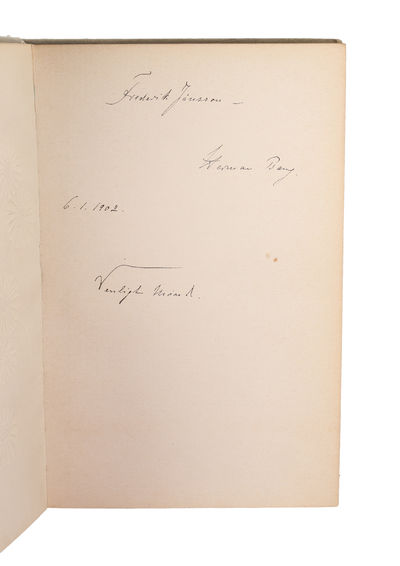 Frederik Jansson –
Herman Bang.
6. 1. 1902.
Venligst